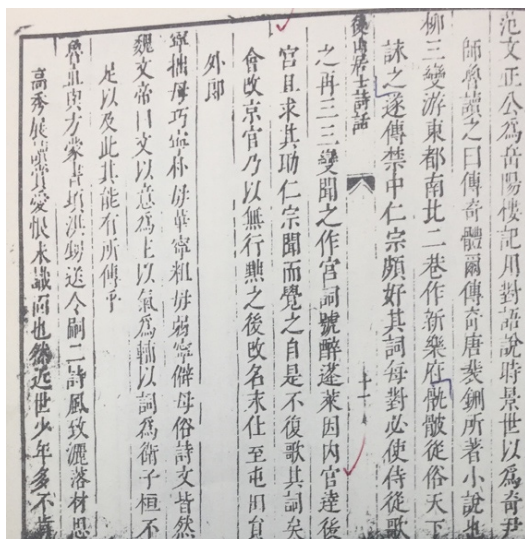 范文正公為岳陽樓記用對語說時景世以為奇尹
師魯讀之曰傳奇體爾傳奇唐裴鉶所著小說也
柳三變游東都南北二巷作新樂府骩骳從俗天下
詠之遂傳禁中仁宗頗好其詞每對必使侍從歌
後山居士詩話
十一
之再三三變聞之作宮詞號醉蓬萊因內官達後
宮且求其助仁宗聞而覺之自是不復歌其詞矣
會改京官乃以無行黜之後改名永仕至屯田員
外郎
寧拙毋巧寧朴毋華寧粗毋弱寧僻毋俗詩文皆然
魏文帝曰文以意為主以氣為輔以詞為衛子桓不
足以及此其能有所傳乎
魯直與方蒙書頃洪甥送令嗣二詩風致灑落材思
高秀展讀賞愛恨未識面也然近世少年多不肯